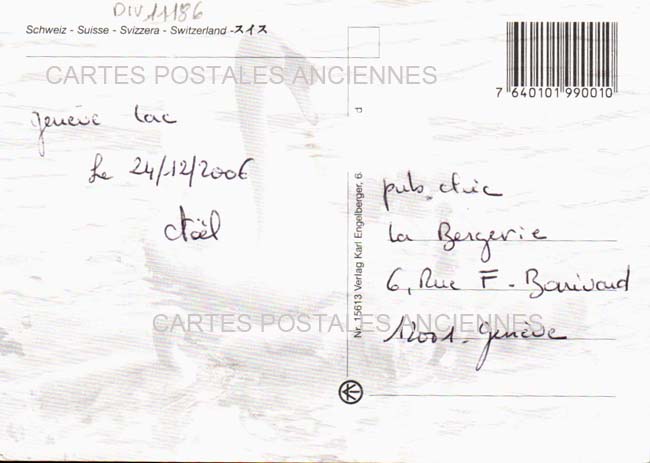 DIV 11186
Schweiz - Suisse - Svizzera - Switzerland -スイス
CARTES POSTALES ANCIENNES
7 640101 990010
genève lac
Le 24/12/2006
Noël
d
Nr. 15613 Verlag Karl Engelberger, 6
pub. chic
La Bergerie
6, Rue F - Bonivard
12001. genève
CARTES POSTALES ANCIENNES